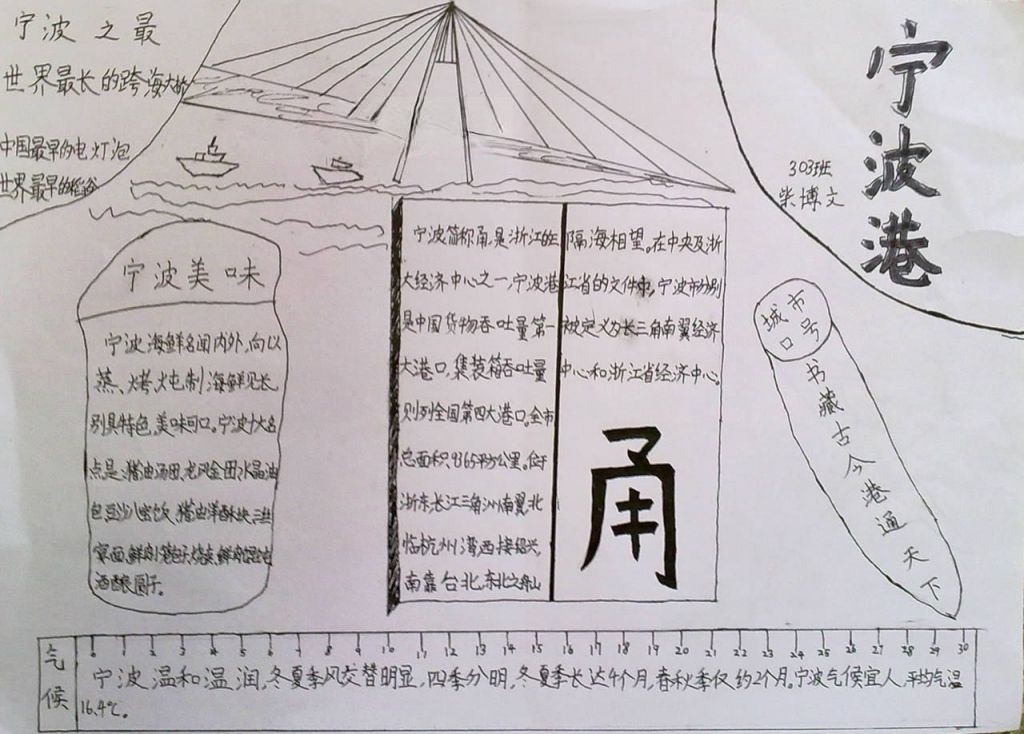 宁波之最
世界最长的跨海大桥
中国最早的电灯泡
世界最早的稻谷
宁波港
303班
柴博文
宁波美味
宁波海鲜名闻内外,向以
蒸、烤、炖制海鲜见长,
别具特色,美味可口。宁波十大名
点是:猪油汤团、龙凤金团、水晶油
包、豆沙八宝饭、猪油洋酥块、三丝
宴面、鲜肉小笼包子、烧卖、鲜肉馄饨、
酒酿圆子。
宁波简称甬,是浙江的三
大经济中心之一,宁波港
是中国货物吞吐量第一
大港口,集装箱吞吐量
则列全国第四大港口。全市
总面积9365平方公里。位于
浙东,长江三角洲南翼,北
临杭州湾,西接绍兴,
南靠台北,东北之舟山
隔海相望。在中央及浙
江省的文件中,宁波市分别
被定义为长三角南翼经济
中心和浙江省经济中心。
甬
城市
口号
书藏古今港通天下
气候
0 1 2 3 4 5 6 7 8 9 10 11 12 13 14 15 16 17 18 19 20 21 22 23 24 25 26 27 28 29 30
宁波温和湿润,冬夏季风交替明显,四季分明,冬夏季长达4个月,春秋季仅约2个月。宁波气候宜人,平均气温
16.4℃。